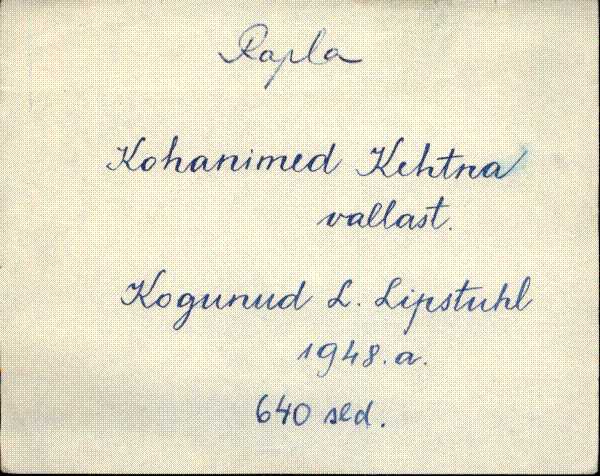 Rapla
Kohanimed Kehtna
vallast.
Kogunud L. Lipstuhl
1948. a.
640 sed.